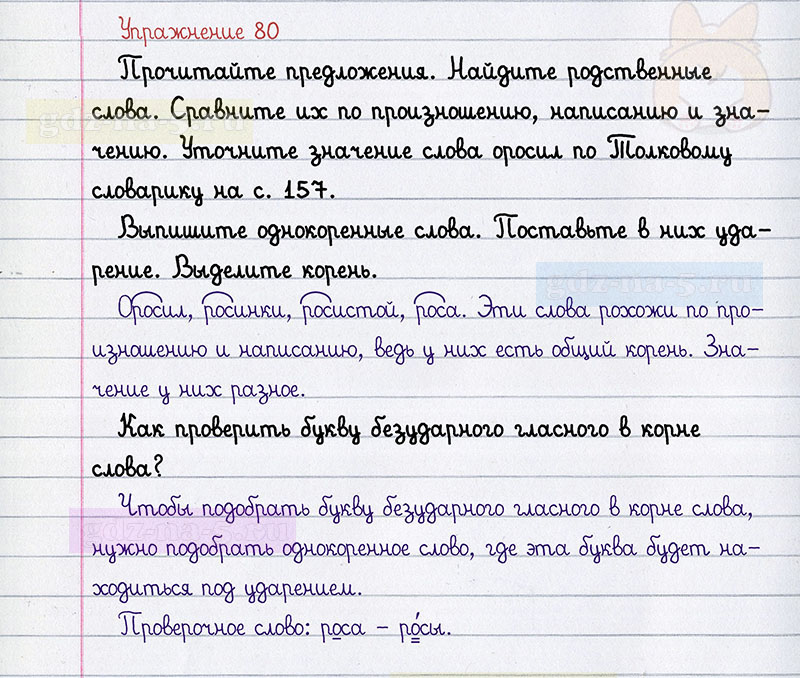 Упражнение 80
Прочитайте предложения. Найдите родственные
слова. Сравните их по произношению, написанию и зна-
чению. Уточните значение слова оросил по Толковому
словарику на с. 157.
Выпишите однокоренные слова. Поставьте в них уда-
рение. Выделите корень.
Оросил, росинки, росистой, роса. Эти слова рохожи по про-
изношению и написанию, ведь у них есть общий корень. Зна-
чение у них разное.
Как проверить букву безударного гласного в корне
слова?
Чтобы подобрать букву безударного гласного в корне слова,
нужно подобрать однокоренное слово, где эта буква будет на-
ходиться под ударением.
Проверочное слово: роса – ро́сы.
gdz-na-5.ru
gdz-na-5.ru
gdz-na-5.ru